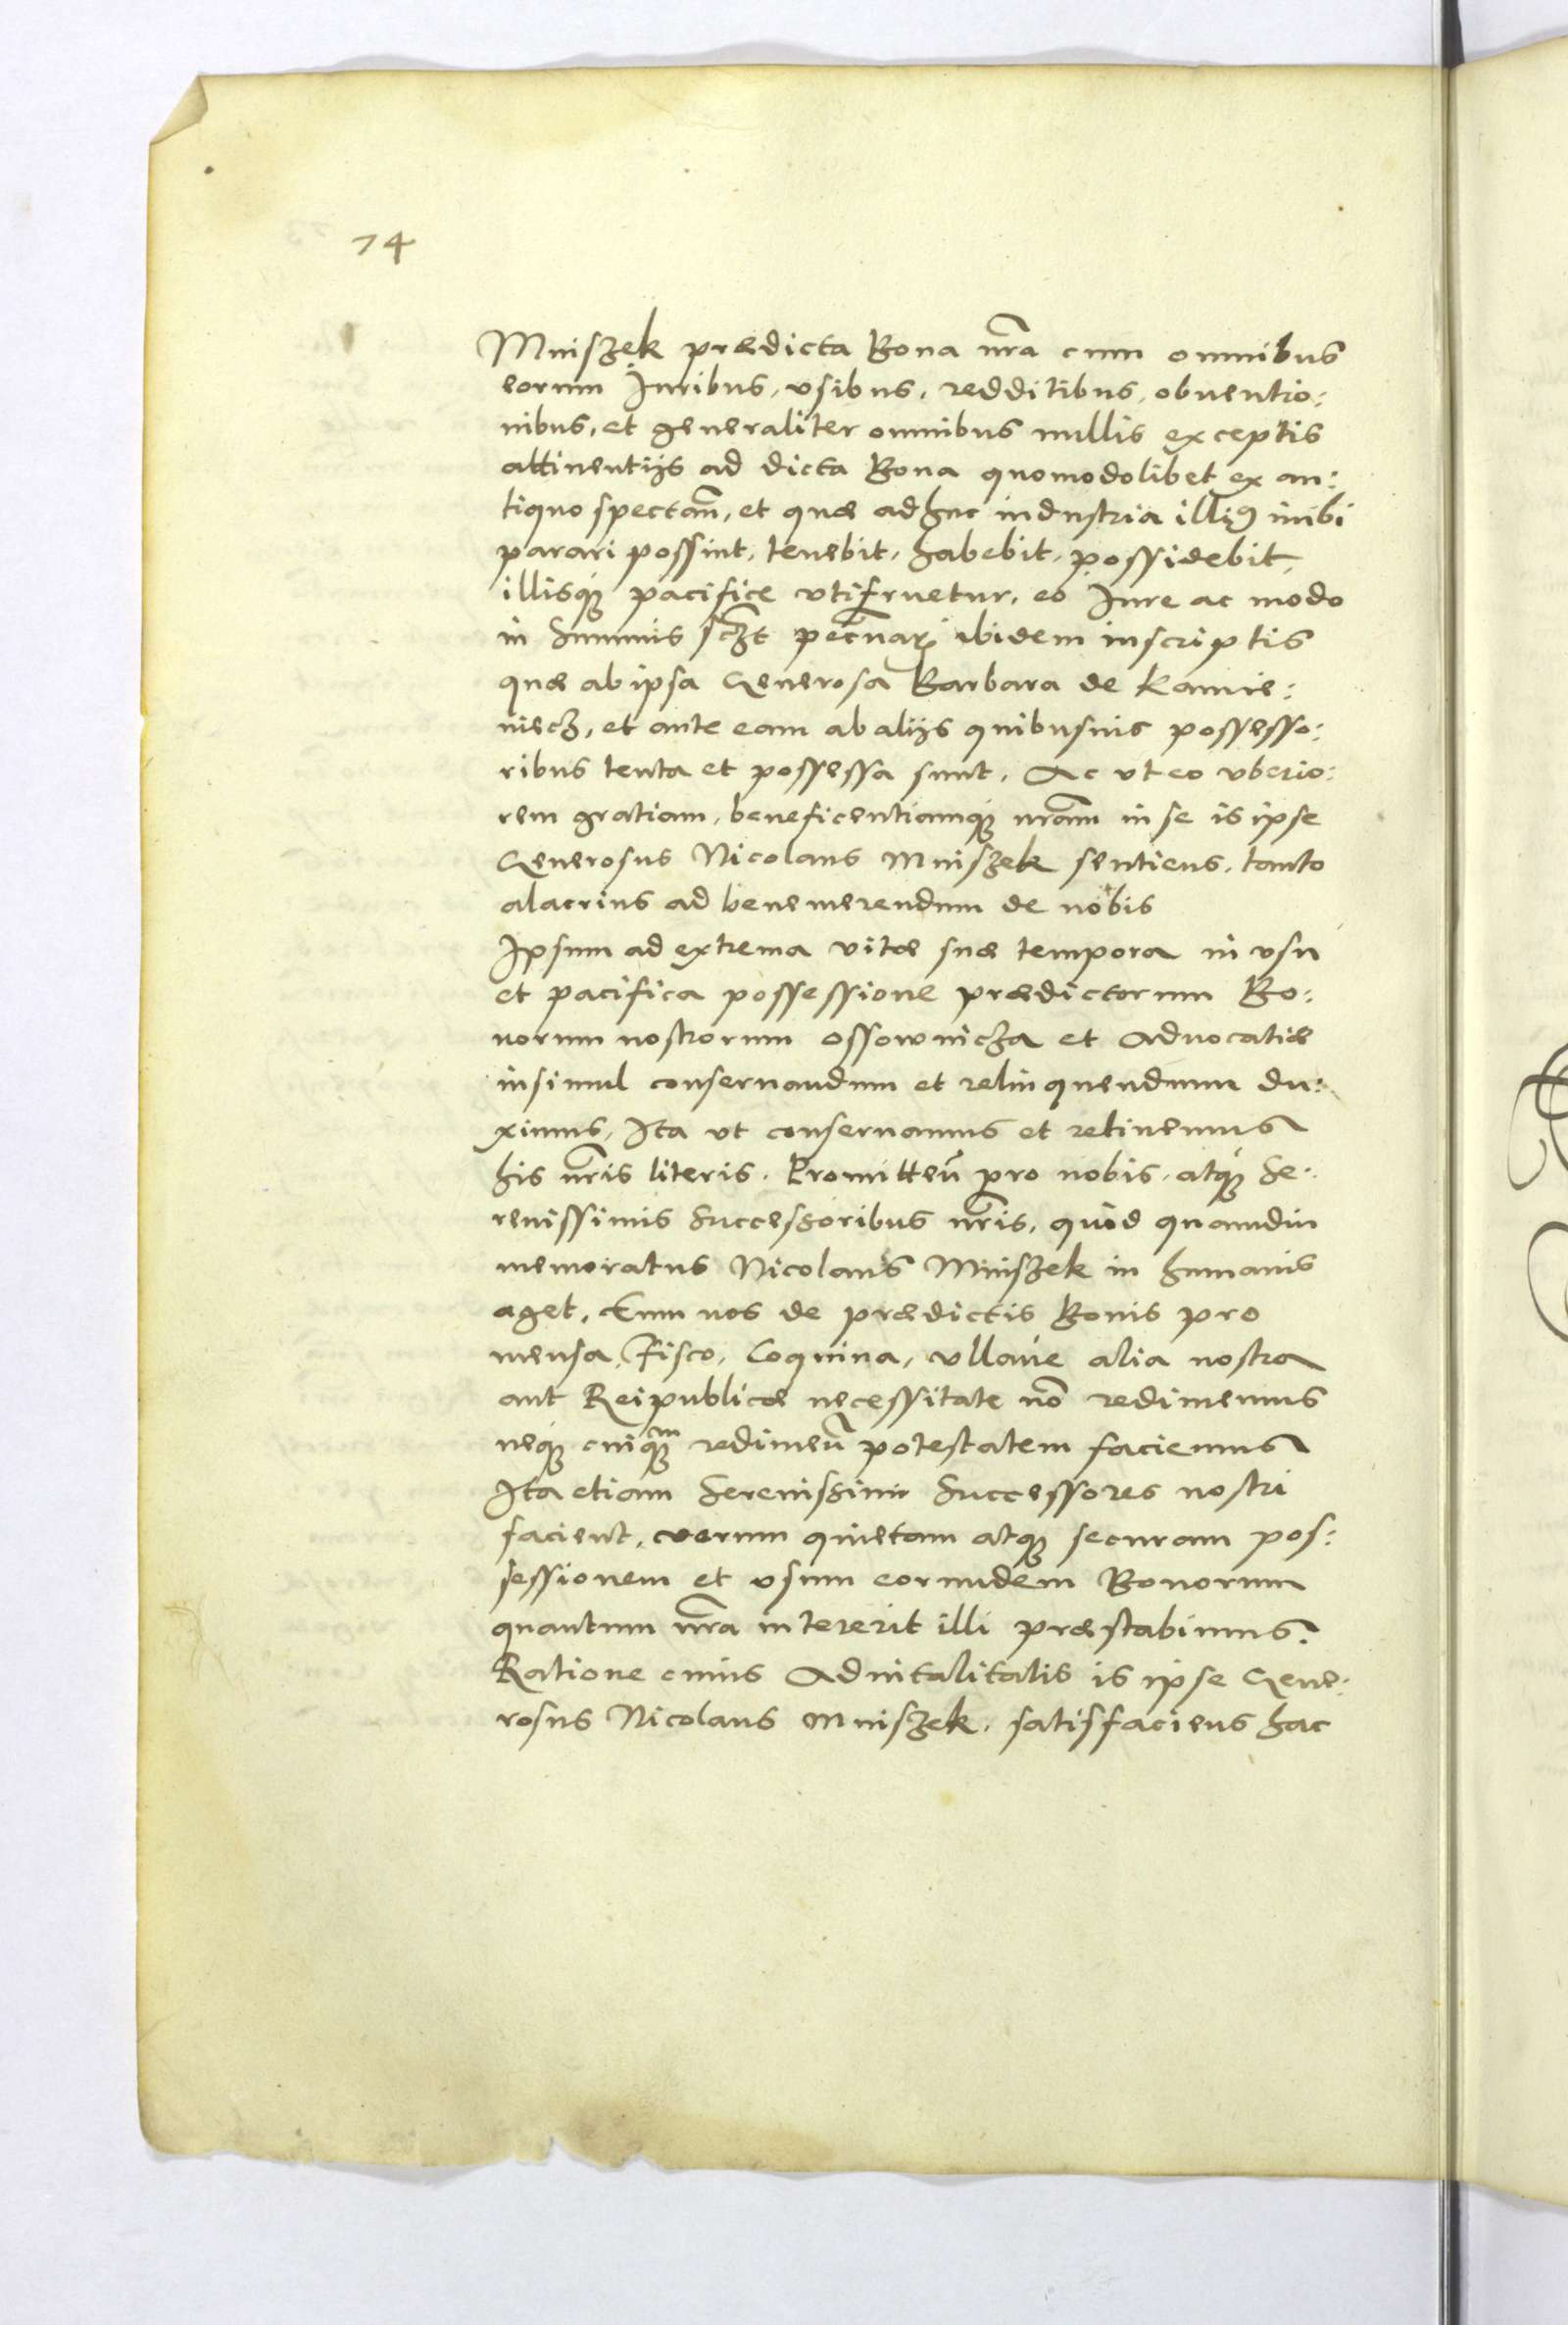 74
Mniszek prædicta Bona nr̃a cum omnibus
eorum Juribus, vsibus, redditibus, obuentio:
nibus, et generaliter omnibus nullis exceptis
attinentijs ad dicta Bona quomodolibet ex an:
tiquo spectañ, et quæ adhuc industria illiꝰ inibi
parari possint, tenebit, habebit, possidebit,
illisqꝫ pacifice vtifruetur, eo Jure ac modo
in Summis sc̃zt pecũnar̃ ibidem inscriptis
quæ ab ipsa Generosa Barbara de Kamie:
niecz, et ante eam ab alijs quibusuis possesso:
ribus tenta et possessa sunt. Ac vt eo vberio:
rem gratiam, beneficentiamqꝫ nr̃am in se is ipse
Generosus Nicolaus Mniszek sentiens, tanto
alacrius ad benemerendum de nobis
Ipsum ad extrema vitæ suæ tempora in vsu
et pacifica possessione prædictorum Bo:
norum nostrorum Ossownicza et Aduocatiæ
insimul conseruandum et relinquendum du:
ximus, Ita vt conseruamus et retinemus
his nr̃is literis. Promitteñ pro nobis, atqꝫ Se:
renissimis Successoribus nr̃is, quod quamdiu
memoratus Nicolaus Mniszek in humanis
aget, Eum nos de prædictis Bonis pro
mensa, Fisco, Coquina, vllaue alia nostra
aut Reipublicæ necessitate nõ redimemus
neqꝫ cuiqꝫm redimeñ potestatem faciemus
Ita etiam Serenissimi Successores nostri
facient, verum quietam atqꝫ securam pos:
sessionem et vsum eorundem Bonorum
quantum nr̃a intererit illi præstabimus.
Ratione cuius Aduitalitatis is ipse Gene:
rosus Nicolaus Mniszek, satisfaciens hac